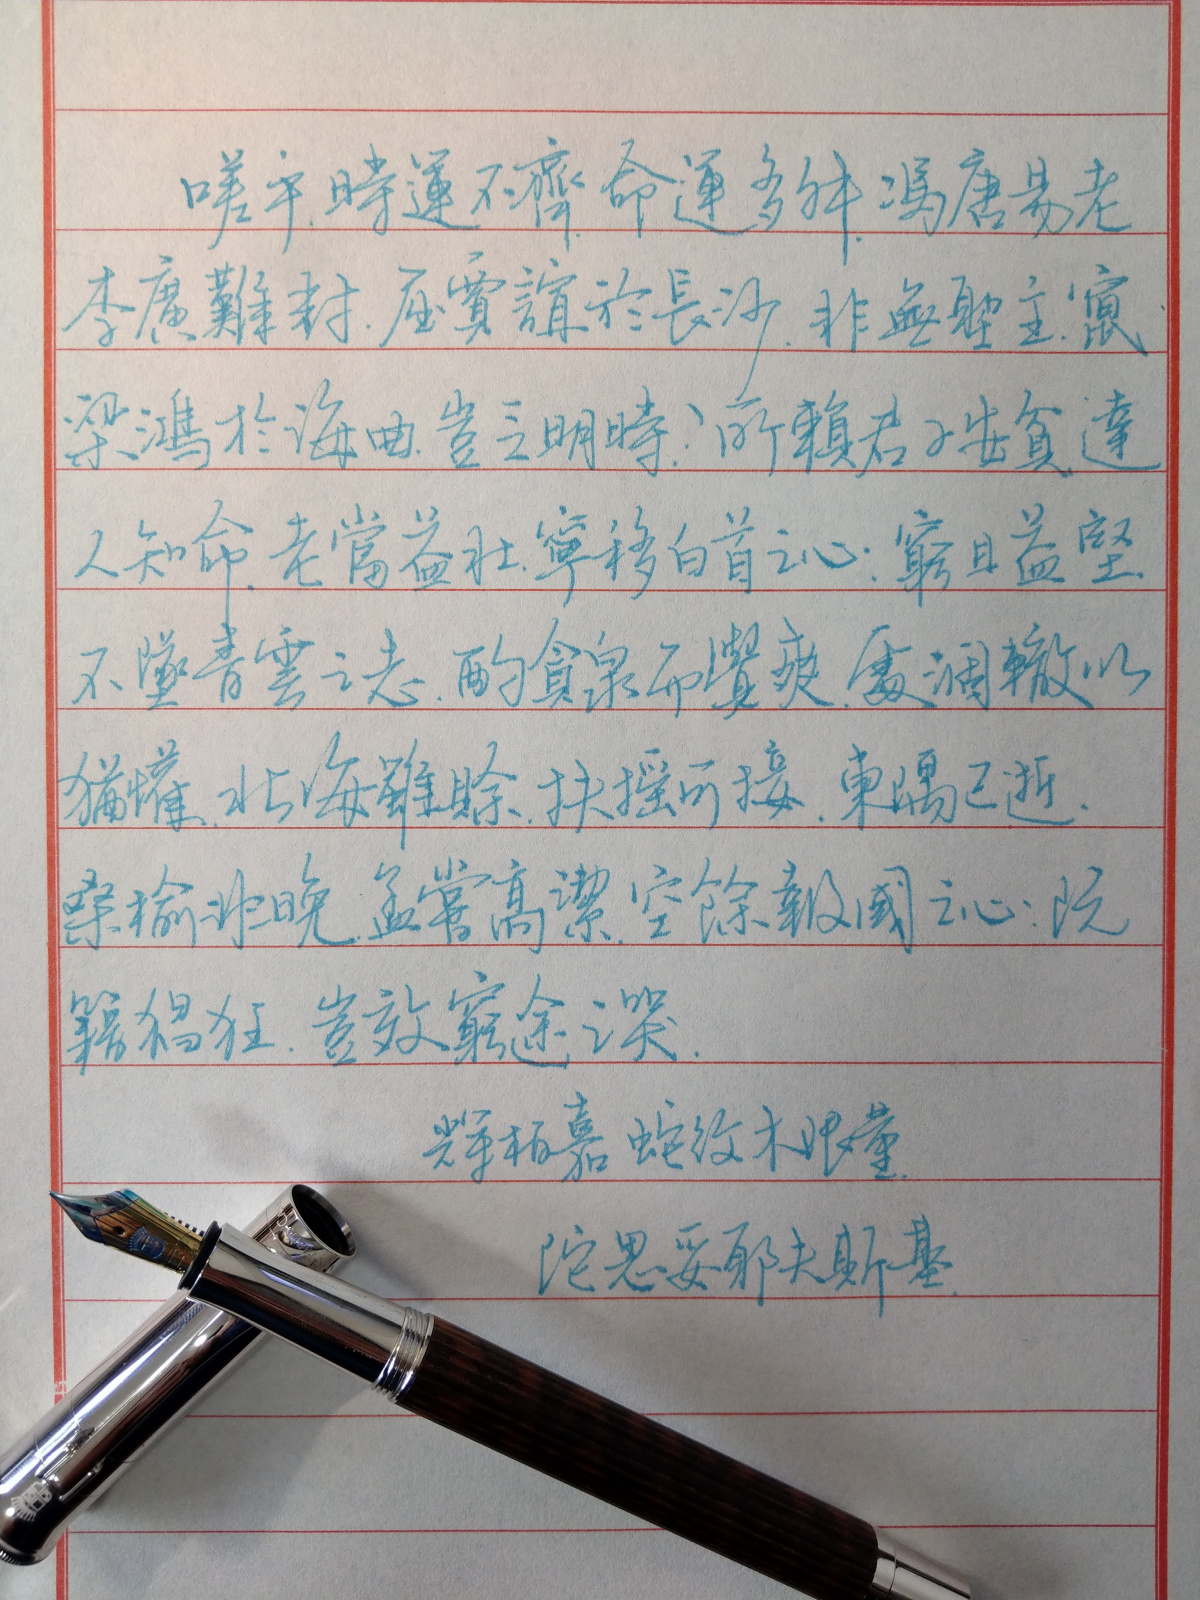 嗟乎.時運不齊.命運多舛.馮唐易老
李廣難封.屈賈誼於長沙.非無聖主.竄
梁鴻於海曲.豈乏明時?所賴君子安貧.達
人知命.老當益壯.寧移白首之心.窮且益堅.
不墜青雲之志.酌貪泉而覺爽.處涸轍以
猶懽.北海雖賒.扶摇可接.東隅已逝.
桑榆非晚.孟嘗高潔.空餘報國之心.阮
籍猖狂.豈效窮途之哭.
輝柏嘉蛇紋木限量.
陀思妥耶夫斯基.